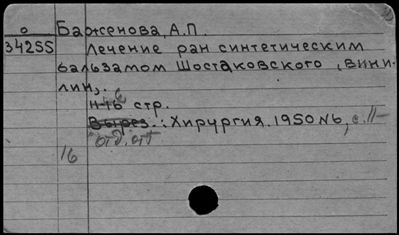 о Баженова, А.П.
34255 Лечение ран синтетическим
бальзамом Шостаковского, вини-
лин,.
11-16 стр.
Вырез.: Хирургия. 1950 N6, с. 11-
16 отд. отт